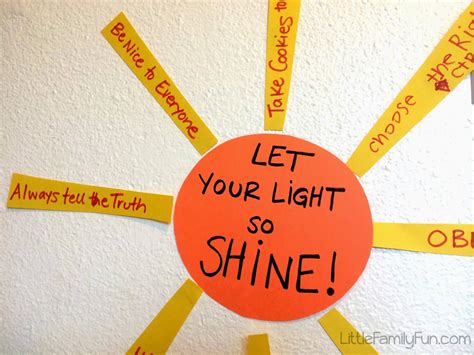 Be Nice to Everyone
Take Cookies to
choose the Ri
Always tell the Truth
LET
YOUR LIGHT
SO
SHINE!
OB
LittleFamilyFun.com